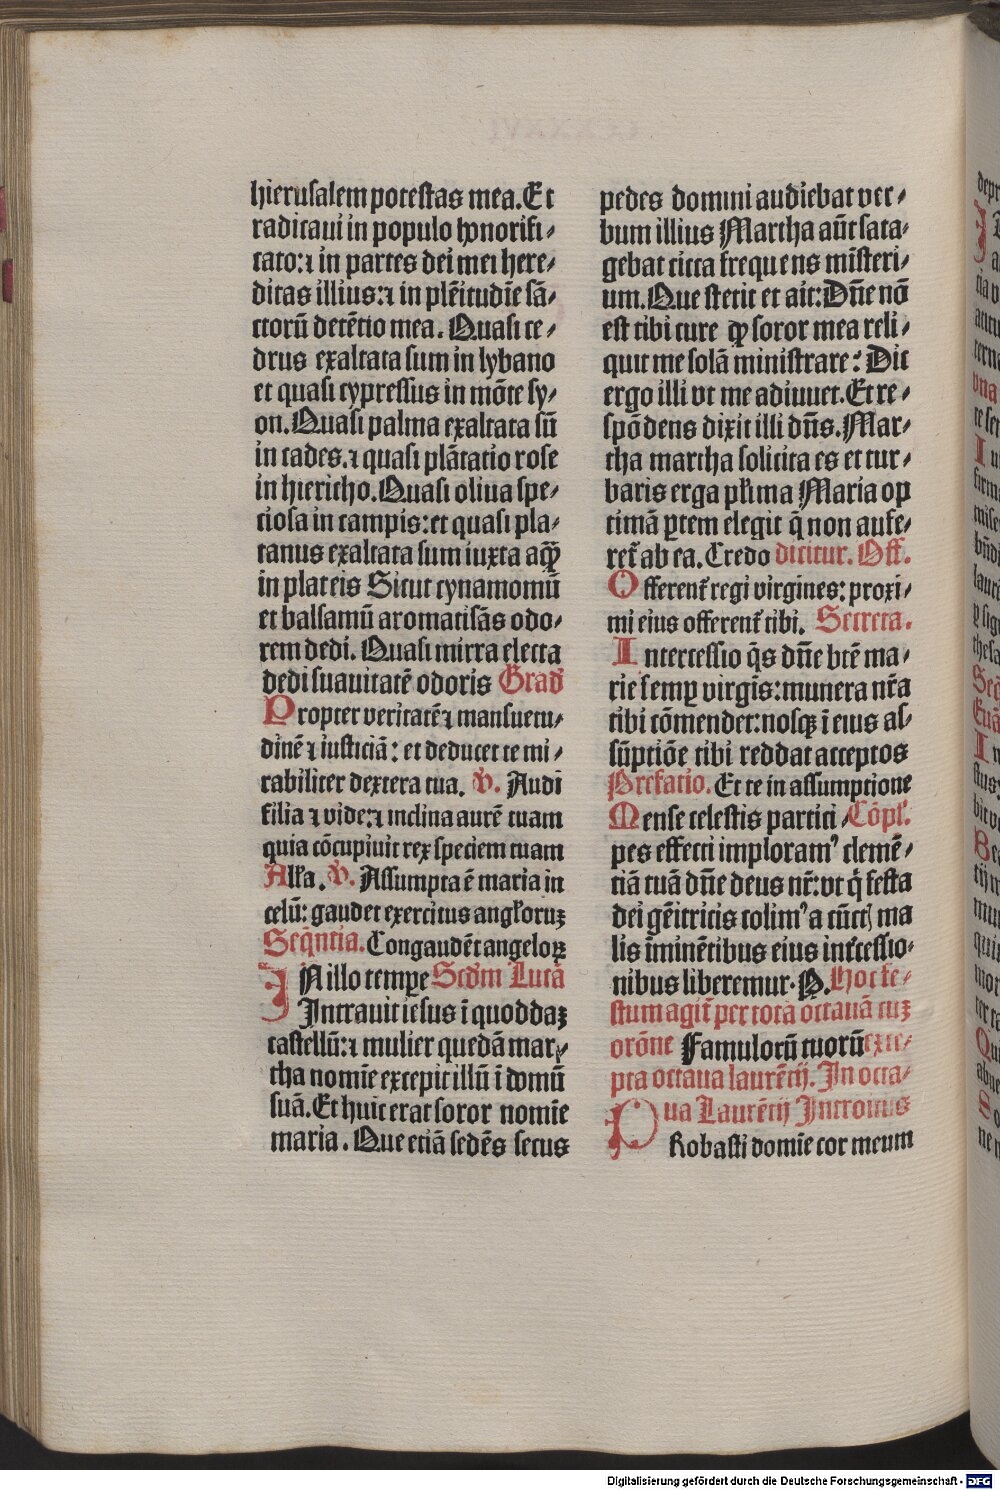 hierusalem potestas mea. Et
radicaui in populo honorifi-
cato: ⁊ in partes dei mei here-
ditas illius: ⁊ in plēitudīe sā-
ctorū detētio mea. Quasi ce-
drus exaltata sum in lybano
et quasi cypressus in mōte sy-
on. Quasi palma exaltata sū
in cades. ⁊ quasi plātatio rose
in hiericho. Quasi oliua spe-
ciosa in campis: et quasi pla-
tanus exaltata sum iuxta aqꝫ
in plateis Sicut cynamomū
et balsamū aromatisās odo-
rem dedi. Quasi mirra electa
dedi suauitatē odoris Grad̄
Propter veritatē ⁊ mansuetu-
dinē ⁊ iusticiā: et deducet te mi-
rabiliter dextera tua. ℣. Audi
filia ⁊ vide: ⁊ inclina aurē tuam
quia cōcupiuit rex speciem tuam
Alła. ℣. Assumpta ē maria in
celū: gaudet exercitus angłoruꝫ
Seq̄ntia. Congaudēt angeloꝝ
IN illo tempe Scd̄m Lucā
Intrauit iesus ī quoddaꝫ
castellū: ⁊ mulier quedā mar-
tha nomīe excepit illū ī domū
suā. Et huic erat soror nomīe
maria. Que etiā sedēs secus
pedes domini audiebat ver-
bum illius Martha aūt sata-
gebat circa frequens mīsteri-
um. Que stetit et ait: Dn̄e nō
est tibi cure ꝙ soror mea reli-
quit me solā ministrare: Dic
ergo illi vt me adiuuet. Et re-
spōdens dixit illi dn̄s. Mar-
tha martha solicita es et tur-
baris erga płima Maria op
timā ꝑtem elegit q̄ non aufe-
ret᷑ ab ea. Credo dicitur. Off.
Offerent᷑ regi virgines: proxi-
mi eius offerent᷑ tibi. Secreta.
Intercessio q̄s dn̄e btē ma-
rie semꝑ virgīs: munera nr̄a
tibi cōmendet: nosqꝫ ī eius as-
sūptiōe tibi reddat acceptos
Prefatio. Et te in assumptione
Mense celestis partici- Cōpł.
pes effecti imploramꝰ clemē-
tiā tuā dn̄e deus nr̄: vt q̄ festa
dei gēitricis colimꝰ a cūctꝭ ma
lis īminētibus eius int̄cessio-
nibus liberemur. P. Hoc fe-
stum agit᷑ per totā octauā cuꝫ
orōne Famulorū tuorū exce-
pta octaua laurētij. In octa-
ua Laurētij Introitus
PRobasti domīe cor meum
Digitalisierung gefördert durch die Deutsche Forschungsgemeinschaft - DFG